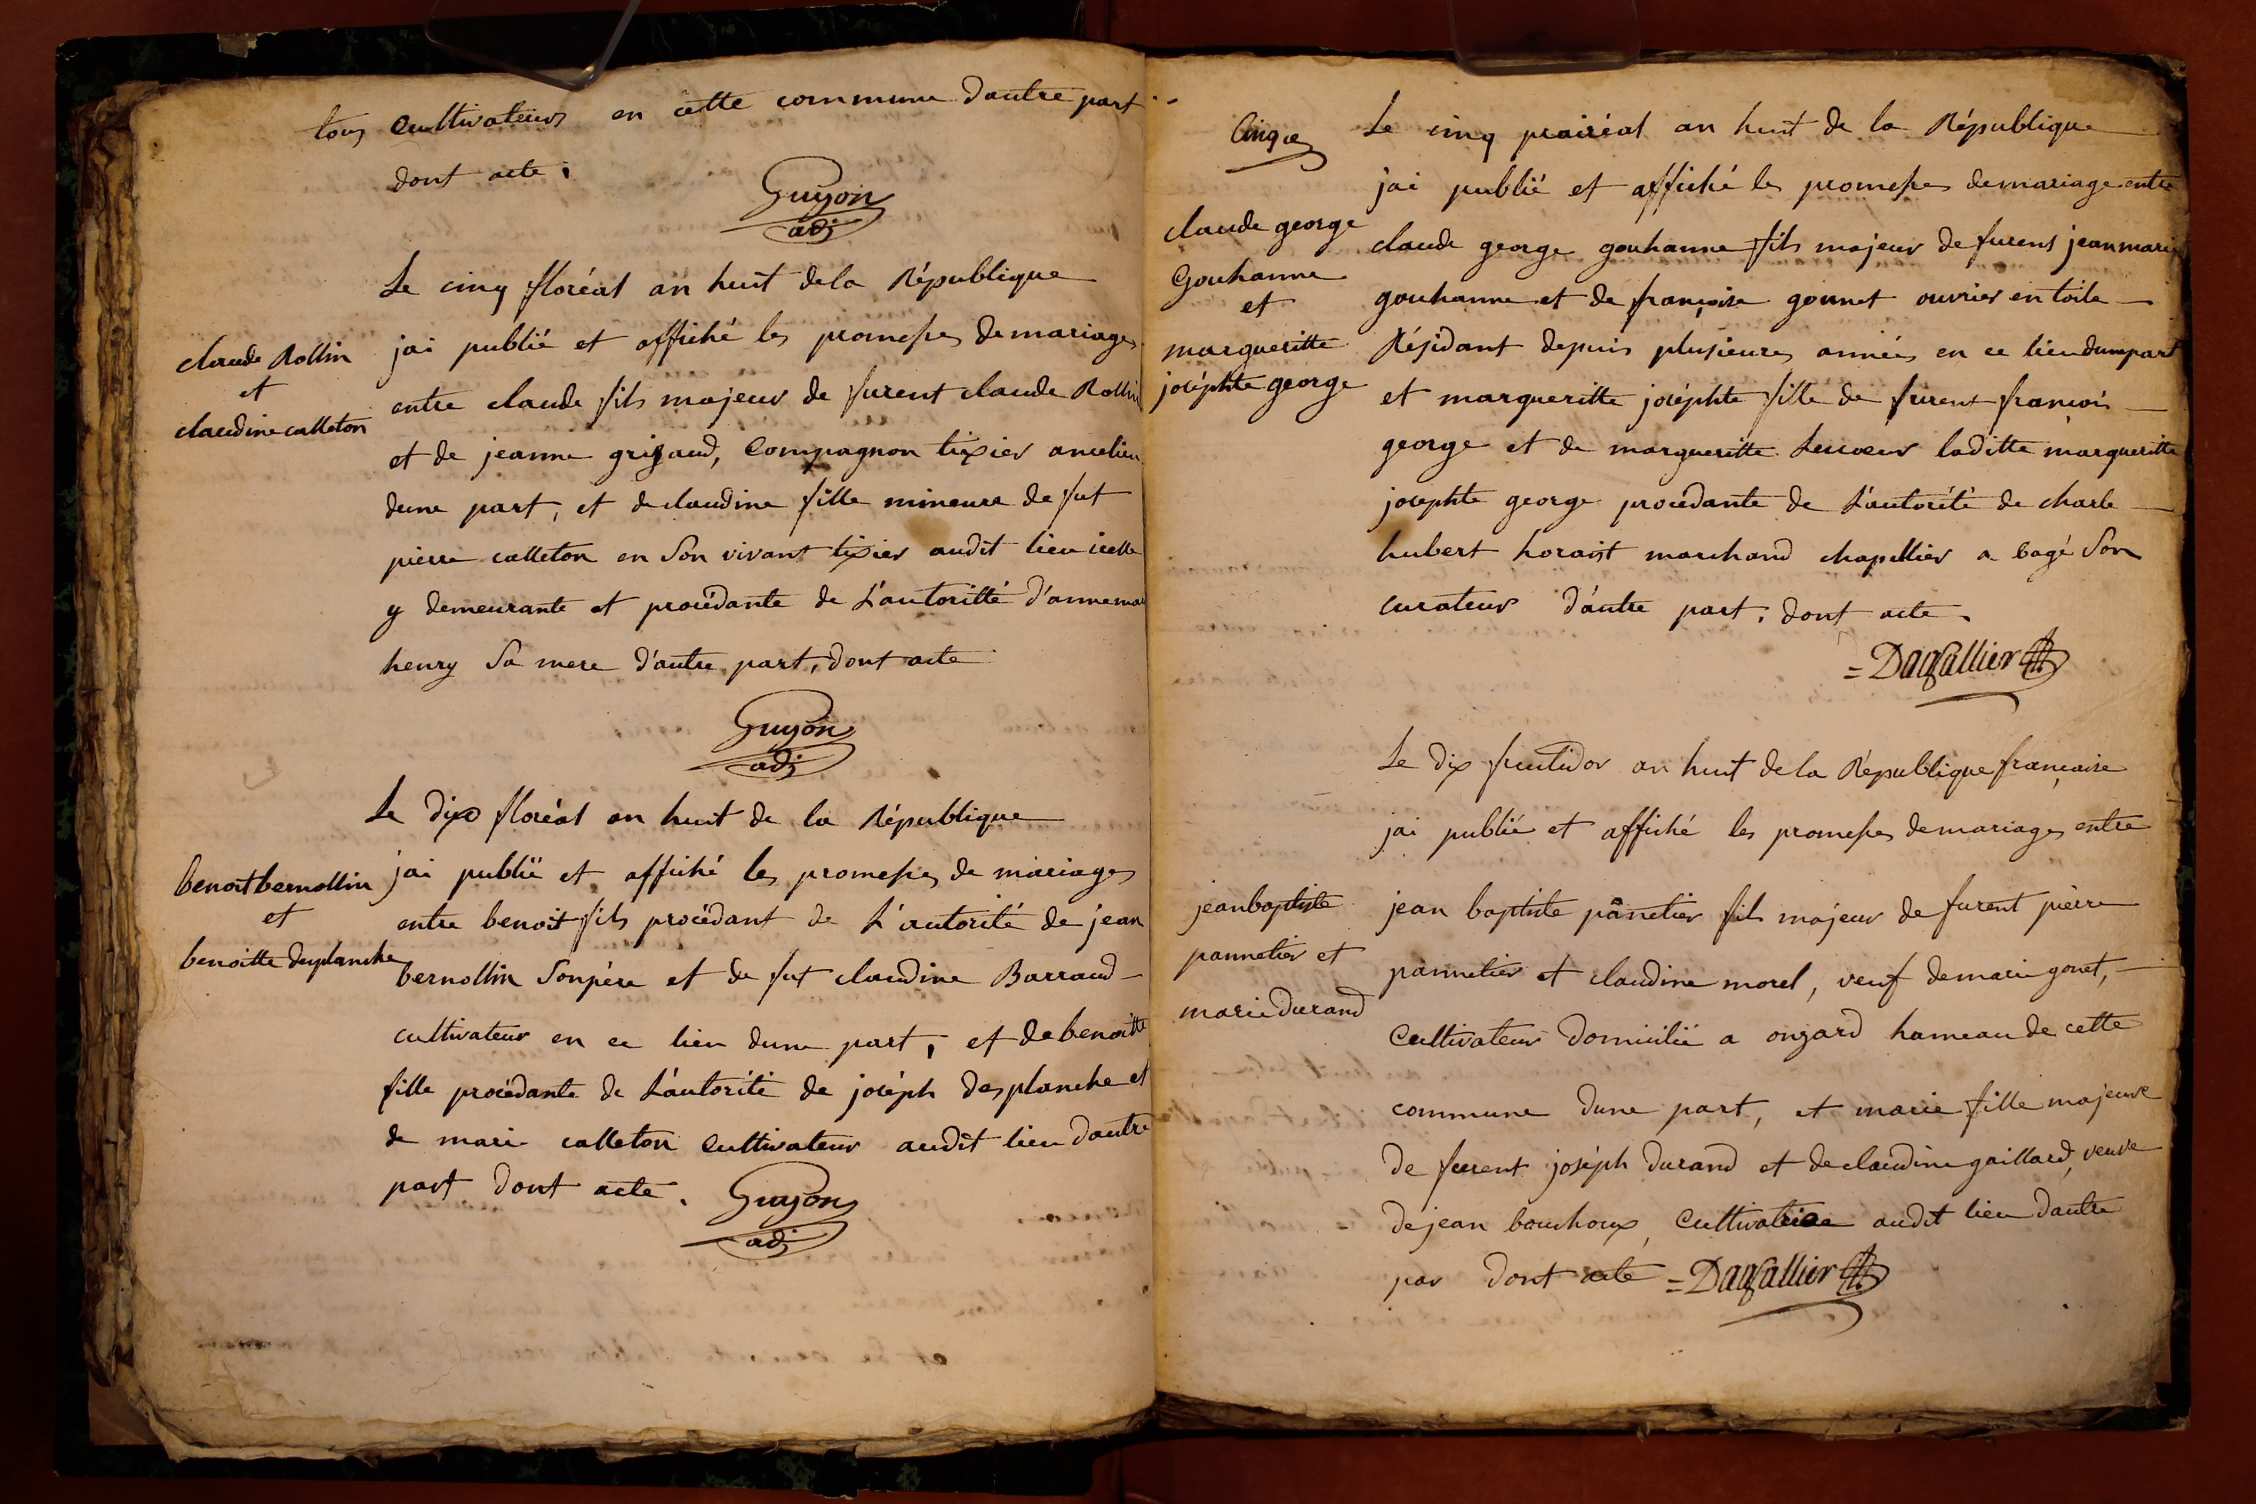 tous cultivateurs en cette commune dautre part
dont acte.
Guyon
adj
Le cinq floréal an huit de la République
claude Rollin
et
claudine calleton
jai publié et affiché les promesses de mariages
entre claude fils majeur de furent claude Rollin
et de jeanne grizaud, compagnon tixier ancelieu
dune part, et de claudine fille mineure de fut
pierre calleton en son vivant tixier audit lieu icelle
y demeurante et procédante de L'autoritté d'annemar
henry sa mere d'autre part, dont acte
Guyon
adj
Le dix floréal an huit de la République
benoit bernollin
et
benoitte duplanche
jai publié et affiché les promesses de mariages
entre benoit fils procédant de L'autorité de jean
bernollin son père et de fut claudine Barraud
cultivateur en ce lieu dune part, et de benoitte
fille procédante de L'autorité de joséph desplanche et
de marie calleton cultivateur audit lieu dautre
part dont acte.
Guyon
adj
Le cinq prairéal an huit de la République
claude george
gouhanne
et
margueritte
joséphte george
jai publié et affiché les promesses de mariage entre
claude george gouhanne fils majeur de furent jean marie
gouhanne et de françoise gonnet ouvrier en toile
Résidant depuis plusieures années en ce lieu dunpart
et margueritte joséphte fille de furent françois
george et de margueritte Lescoeur laditte margueritte
josephte george procédante de L'autorité de charle
hubert horaist marchand chapellier a bagé son
curateur d'autre part, dont acte.
= Dagallier
Le dix fructidor an huit de la République française
jai publié et affiché les promesses de mariages entre
jean baptiste
pannetier et
marie durand
jean baptiste pânetier fils majeur de furent pierre
pannetier et claudine morel, veuf de marie gonet,
cultivateur domicilié a onzard hameau de cette
commune dune part, et marie fille majeure
de furent joséph durand et de claudine gaillard, veuve
de jean bouchoux, cultivatrice audit lieu dautre
par dont acte = Dagallier